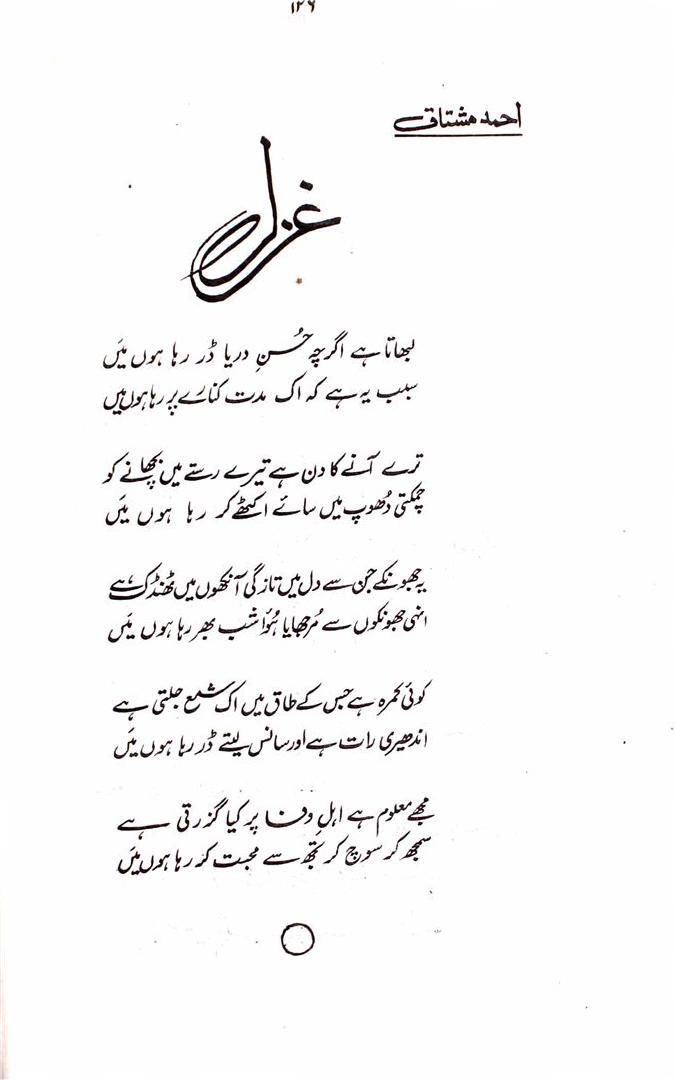 ۱۲۶
احمد مشتاق
غزل
لبھاتا ہے اگرچہ حُسنِ دریا ڈر رہا ہوں میں
سبب یہ ہے کہ اک مدت کنارے پر رہا ہوں میں
ترے آنے کا دن ہے تیرے رستے میں بچھانے کو
چمکتی دُھوپ میں سائے اکٹھے کر رہا ہوں میں
یہ جھونکے جن سے دل میں تازگی آنکھوں میں ٹھنڈک ہے
انہی جھونکوں سے مُرجھایا ہُوا شب بھر رہا ہوں میں
کوئی کمرہ ہے جس کے طاق میں اک شمع جلتی ہے
اندھیری رات ہے اور سانس لیتے ڈر رہا ہوں میں
مجھے معلوم ہے اہلِ وفا پر کیا گزرتی ہے
سمجھ کر سوچ کر تجھ سے محبت کر رہا ہوں میں